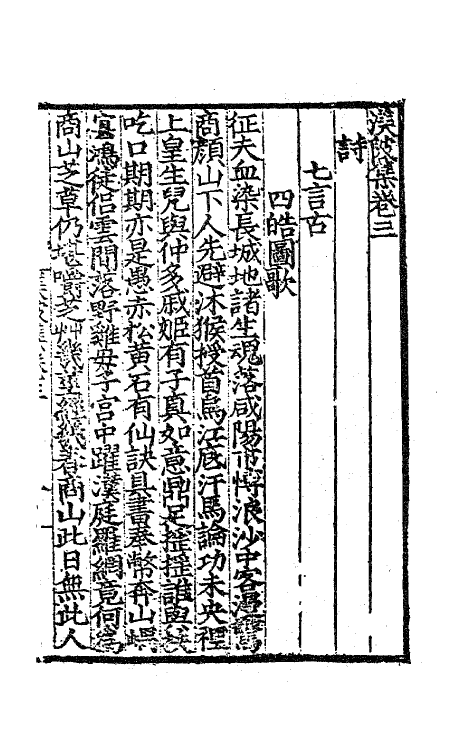 渼陂集卷三
詩
七言古
四皓圖歌
征夫血染長城地諸生魂落咸陽市博浪沙中客
商顏山下人先避沐猴授首烏江底汗馬論功未央裡
上皇生兒與仲多戚姬有子真如意鼎足搖搖誰與
吃口期期亦是愚赤松黃石有仙訣具書奉幣奔山
冥鴻徒侶雲間落野雞母子宮中躍漢庭羅網竟何為
商山芝草仍堪嚼芝艸商山此日無此人